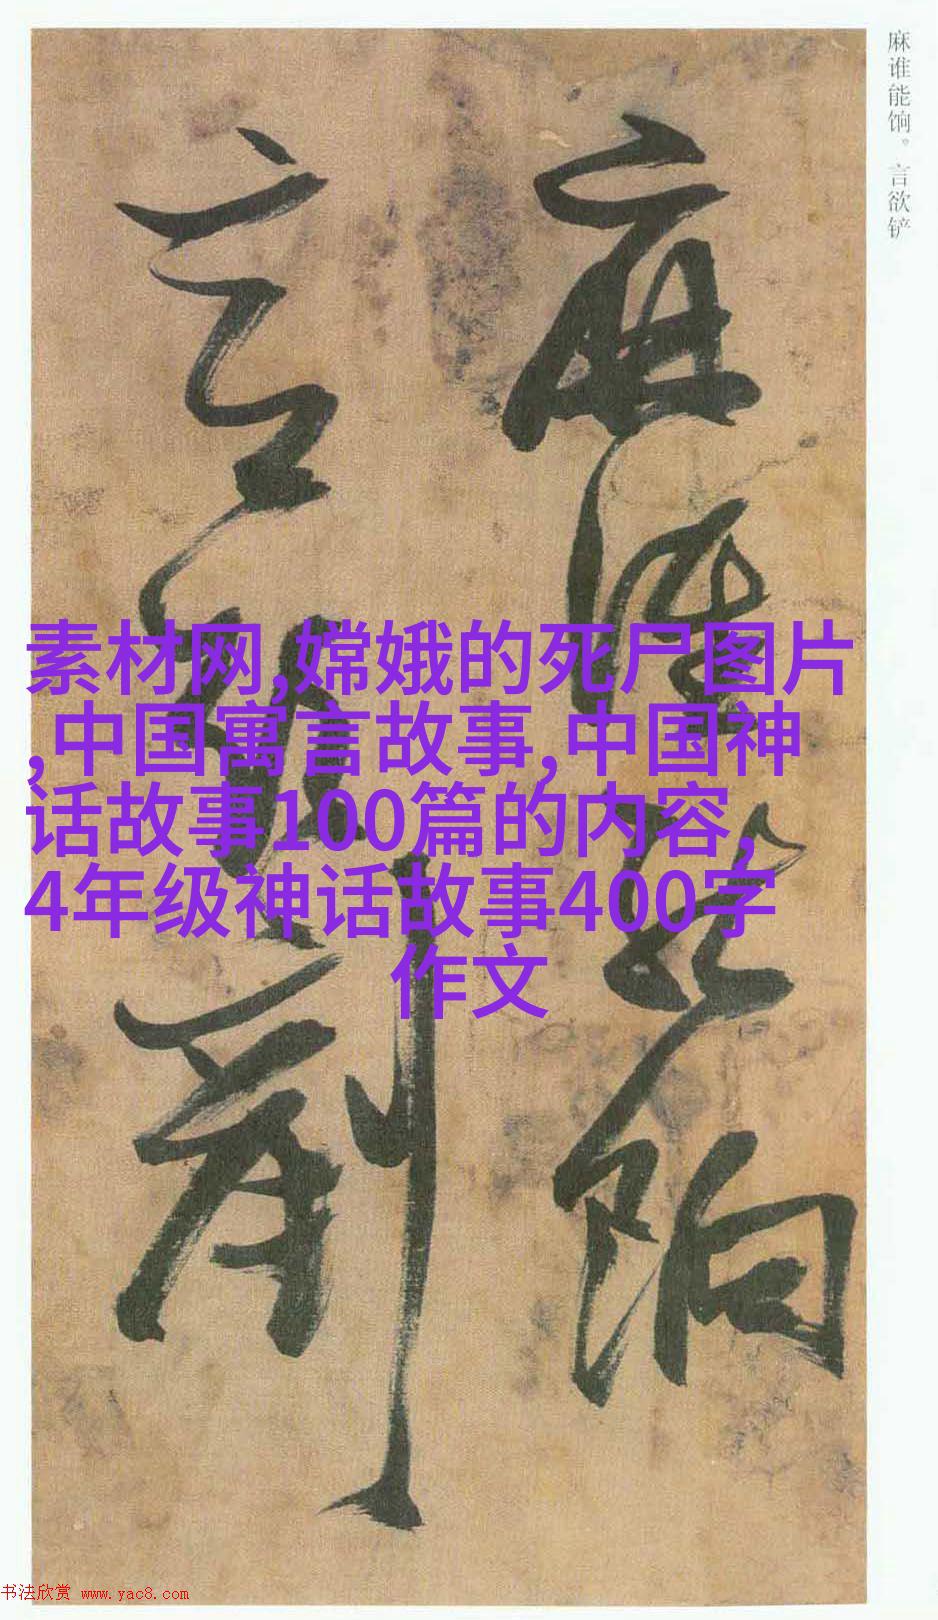 麻谁能饷。言欲铲
麻谁能饷
言欲刬
素材网,嫦娥的死尸图片
,中国寓言故事,中国神
话故事100篇的内容,
4年级神话故事400字
作文
书法欣赏 www.yac8.com